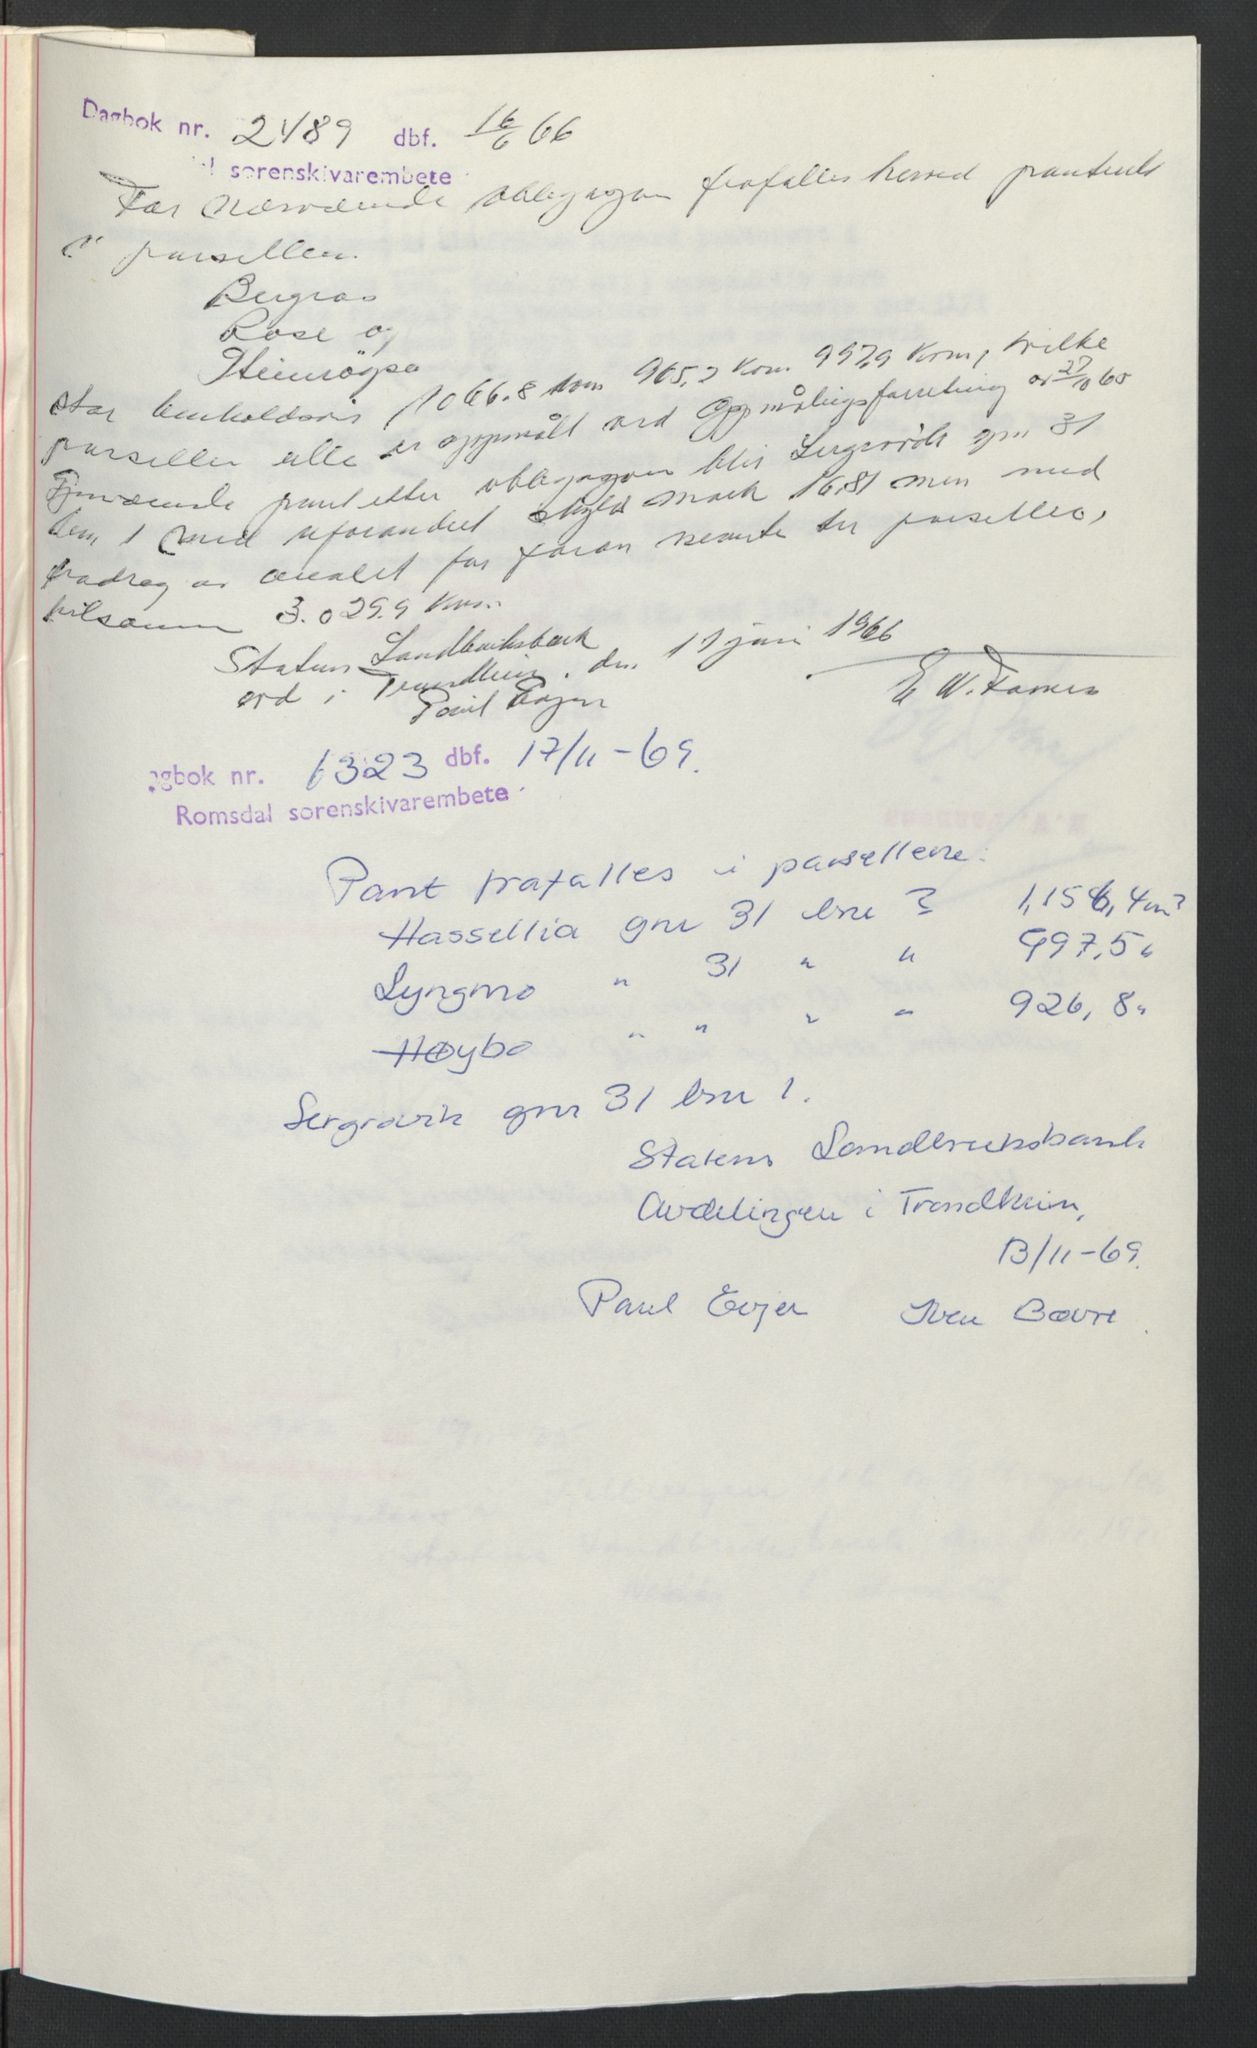 Dagbok nr. 2489 dbf. 16/6 66
sorenskivarembete
For nærværende obligasjon frafalles herved panterett
i parsellen
Bergros
Rose og
stor henholdsvis 1066.8 kvm 965,2 kvm 997,9 kvm, hvilke
parseller alle er oppmålt ved Oppmålingsforretning av 27/10 65
pant etter obligasjon blir gnr 31
bnr 1 med uforandret skyld mark 16,81 men med
fradrag av arealet for foran nevnte tre parseller,
tilsamm 3.029.9 kvm.
Statens Landbruksbank
avd i Trondheim, den 11 juni 1966
Paul Evjen
Dagbok nr. 6323 dbf. 17/11-69.
Romsdal sorenskivarembete
Pant frafalles i parsellene:
Hassellia gnr 31 bnr ? 1,156,4 m²
Lyngmo " 31 " " 997,5 "
Høybo " " " " 926,8 "
gnr 31 bnr 1.
Statens Landbruksbank
Avdelingen i Trondheim,
13/11-69.
Paul Evjen Iver Bævre